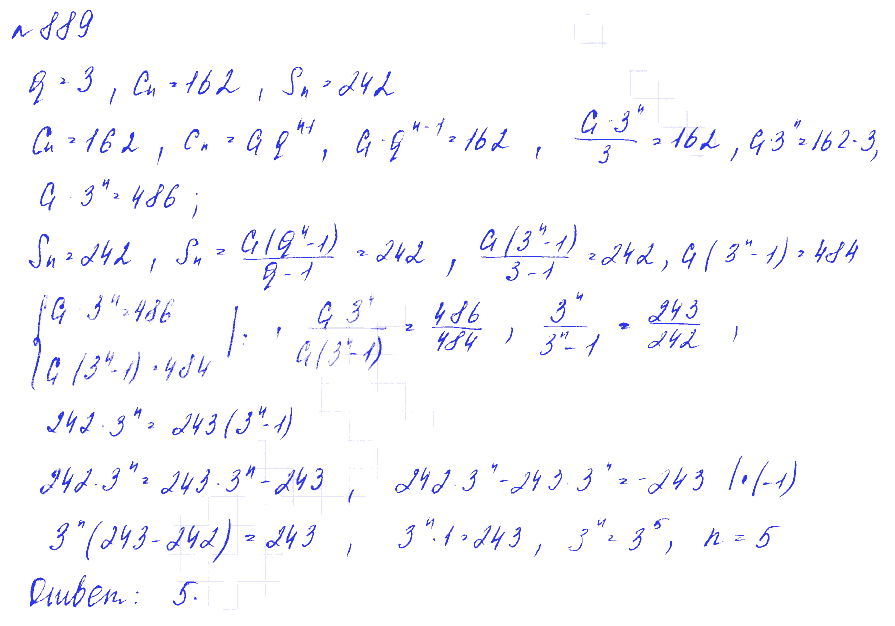 №889
q = 3, Cₙ = 162, Sₙ = 242
Cₙ = 162, Cₙ = C₁qⁿ⁻¹, C₁·qⁿ⁻¹ = 162, C₁·3ⁿ/3 = 162, C₁3ⁿ = 162·3,
C₁·3ⁿ = 486;
Sₙ = 242, Sₙ = C₁(qⁿ-1)/(q-1) = 242, C₁(3ⁿ-1)/(3-1) = 242, C₁(3ⁿ-1) = 484
{C₁·3ⁿ = 486
C₁(3ⁿ-1) = 484 |:, C₁3ⁿ/C₁(3ⁿ-1) = 486/484, 3ⁿ/(3ⁿ-1) = 243/242,
242·3ⁿ = 243(3ⁿ-1)
242·3ⁿ = 243·3ⁿ - 243, 242·3ⁿ - 243·3ⁿ = -243 |·(-1)
3ⁿ(243-242) = 243, 3ⁿ·1 = 243, 3ⁿ = 3⁵, n = 5
Ответ: 5.